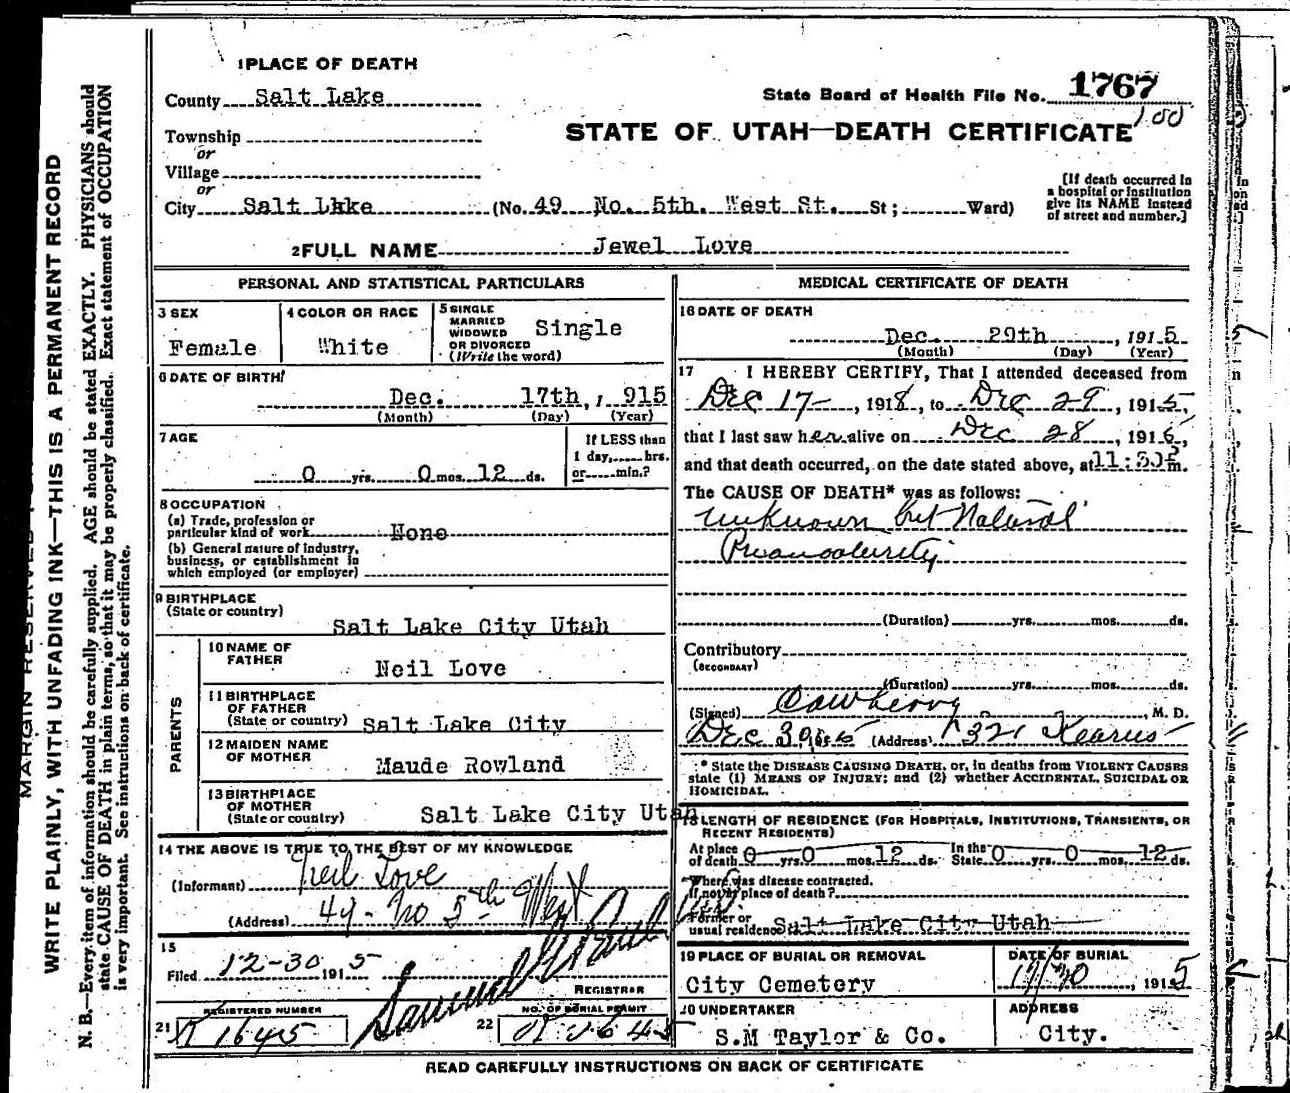 1 PLACE OF DEATH
County Salt Lake
State Board of Health File No. 1767
Township
or
STATE OF UTAH—DEATH CERTIFICATE
Village
or
City Salt Lake (No. 49 No. 5th. West St. St; Ward)
[If death occurred in
a hospital or institution
give its NAME instead
of street and number.]
2 FULL NAME Jewel Love
PERSONAL AND STATISTICAL PARTICULARS
3 SEX
Female
4 COLOR OR RACE
White
5 SINGLE
MARRIED
WIDOWED
OR DIVORCED
(Write the word)
Single
6 DATE OF BIRTH
Dec. 17th, , 915
(Month) (Day) (Year)
7 AGE
0 yrs. 0 mos. 12 ds.
If LESS than
1 day, hrs.
or min.?
8 OCCUPATION
(a) Trade, profession or
particular kind of work None
(b) General nature of industry,
business, or establishment in
which employed (or employer)
9 BIRTHPLACE
(State or country)
Salt Lake City Utah
PARENTS
10 NAME OF
FATHER
Neil Love
11 BIRTHPLACE
OF FATHER
(State or country) Salt Lake City
12 MAIDEN NAME
OF MOTHER
Maude Rowland
13 BIRTHPLACE
OF MOTHER
(State or country) Salt Lake City Utah
14 THE ABOVE IS TRUE TO THE BEST OF MY KNOWLEDGE
(Informant) Neil Love
(Address) 49 - No 5th West
15
Filed 12-30 1915
REGISTRAR
21 REGISTERED NUMBER
1645
22 NO. OF BURIAL PERMIT
MEDICAL CERTIFICATE OF DEATH
16 DATE OF DEATH
Dec. 29th , 1915
(Month) (Day) (Year)
17 I HEREBY CERTIFY, That I attended deceased from
Dec 17- , 1918, to Dec 29 , 1915,
that I last saw her alive on Dec 28 , 1915,
and that death occurred, on the date stated above, at 11:30 m.
The CAUSE OF DEATH* was as follows:
unknown but Natural
(Duration) yrs. mos. ds.
Contributory
(SECONDARY)
(Duration) yrs. mos. ds.
(Signed) , M. D.
Dec 30 1915 (Address) 321 Kearns
* State the DISEASE CAUSING DEATH, or, in deaths from VIOLENT CAUSES
state (1) MEANS OF INJURY; and (2) whether ACCIDENTAL, SUICIDAL OR
HOMICIDAL.
18 LENGTH OF RESIDENCE (FOR HOSPITALS, INSTITUTIONS, TRANSIENTS, OR
RECENT RESIDENTS)
At place
of death 0 yrs. 0 mos. 12 ds.
In the
State 0 yrs. 0 mos. 12 ds.
Where was disease contracted,
if not at place of death?
Former or
usual residence Salt Lake City Utah
19 PLACE OF BURIAL OR REMOVAL
City Cemetery
DATE OF BURIAL
12/30 , 1915
20 UNDERTAKER
S.M Taylor & Co.
ADDRESS
City.
READ CAREFULLY INSTRUCTIONS ON BACK OF CERTIFICATE
MARGIN RESERVED
WRITE PLAINLY, WITH UNFADING INK—THIS IS A PERMANENT RECORD
N. B.—Every item of information should be carefully supplied. AGE should be stated EXACTLY. PHYSICIANS should
state CAUSE OF DEATH in plain terms, so that it may be properly classified. Exact statement of OCCUPATION
is very important. See instructions on back of certificate.